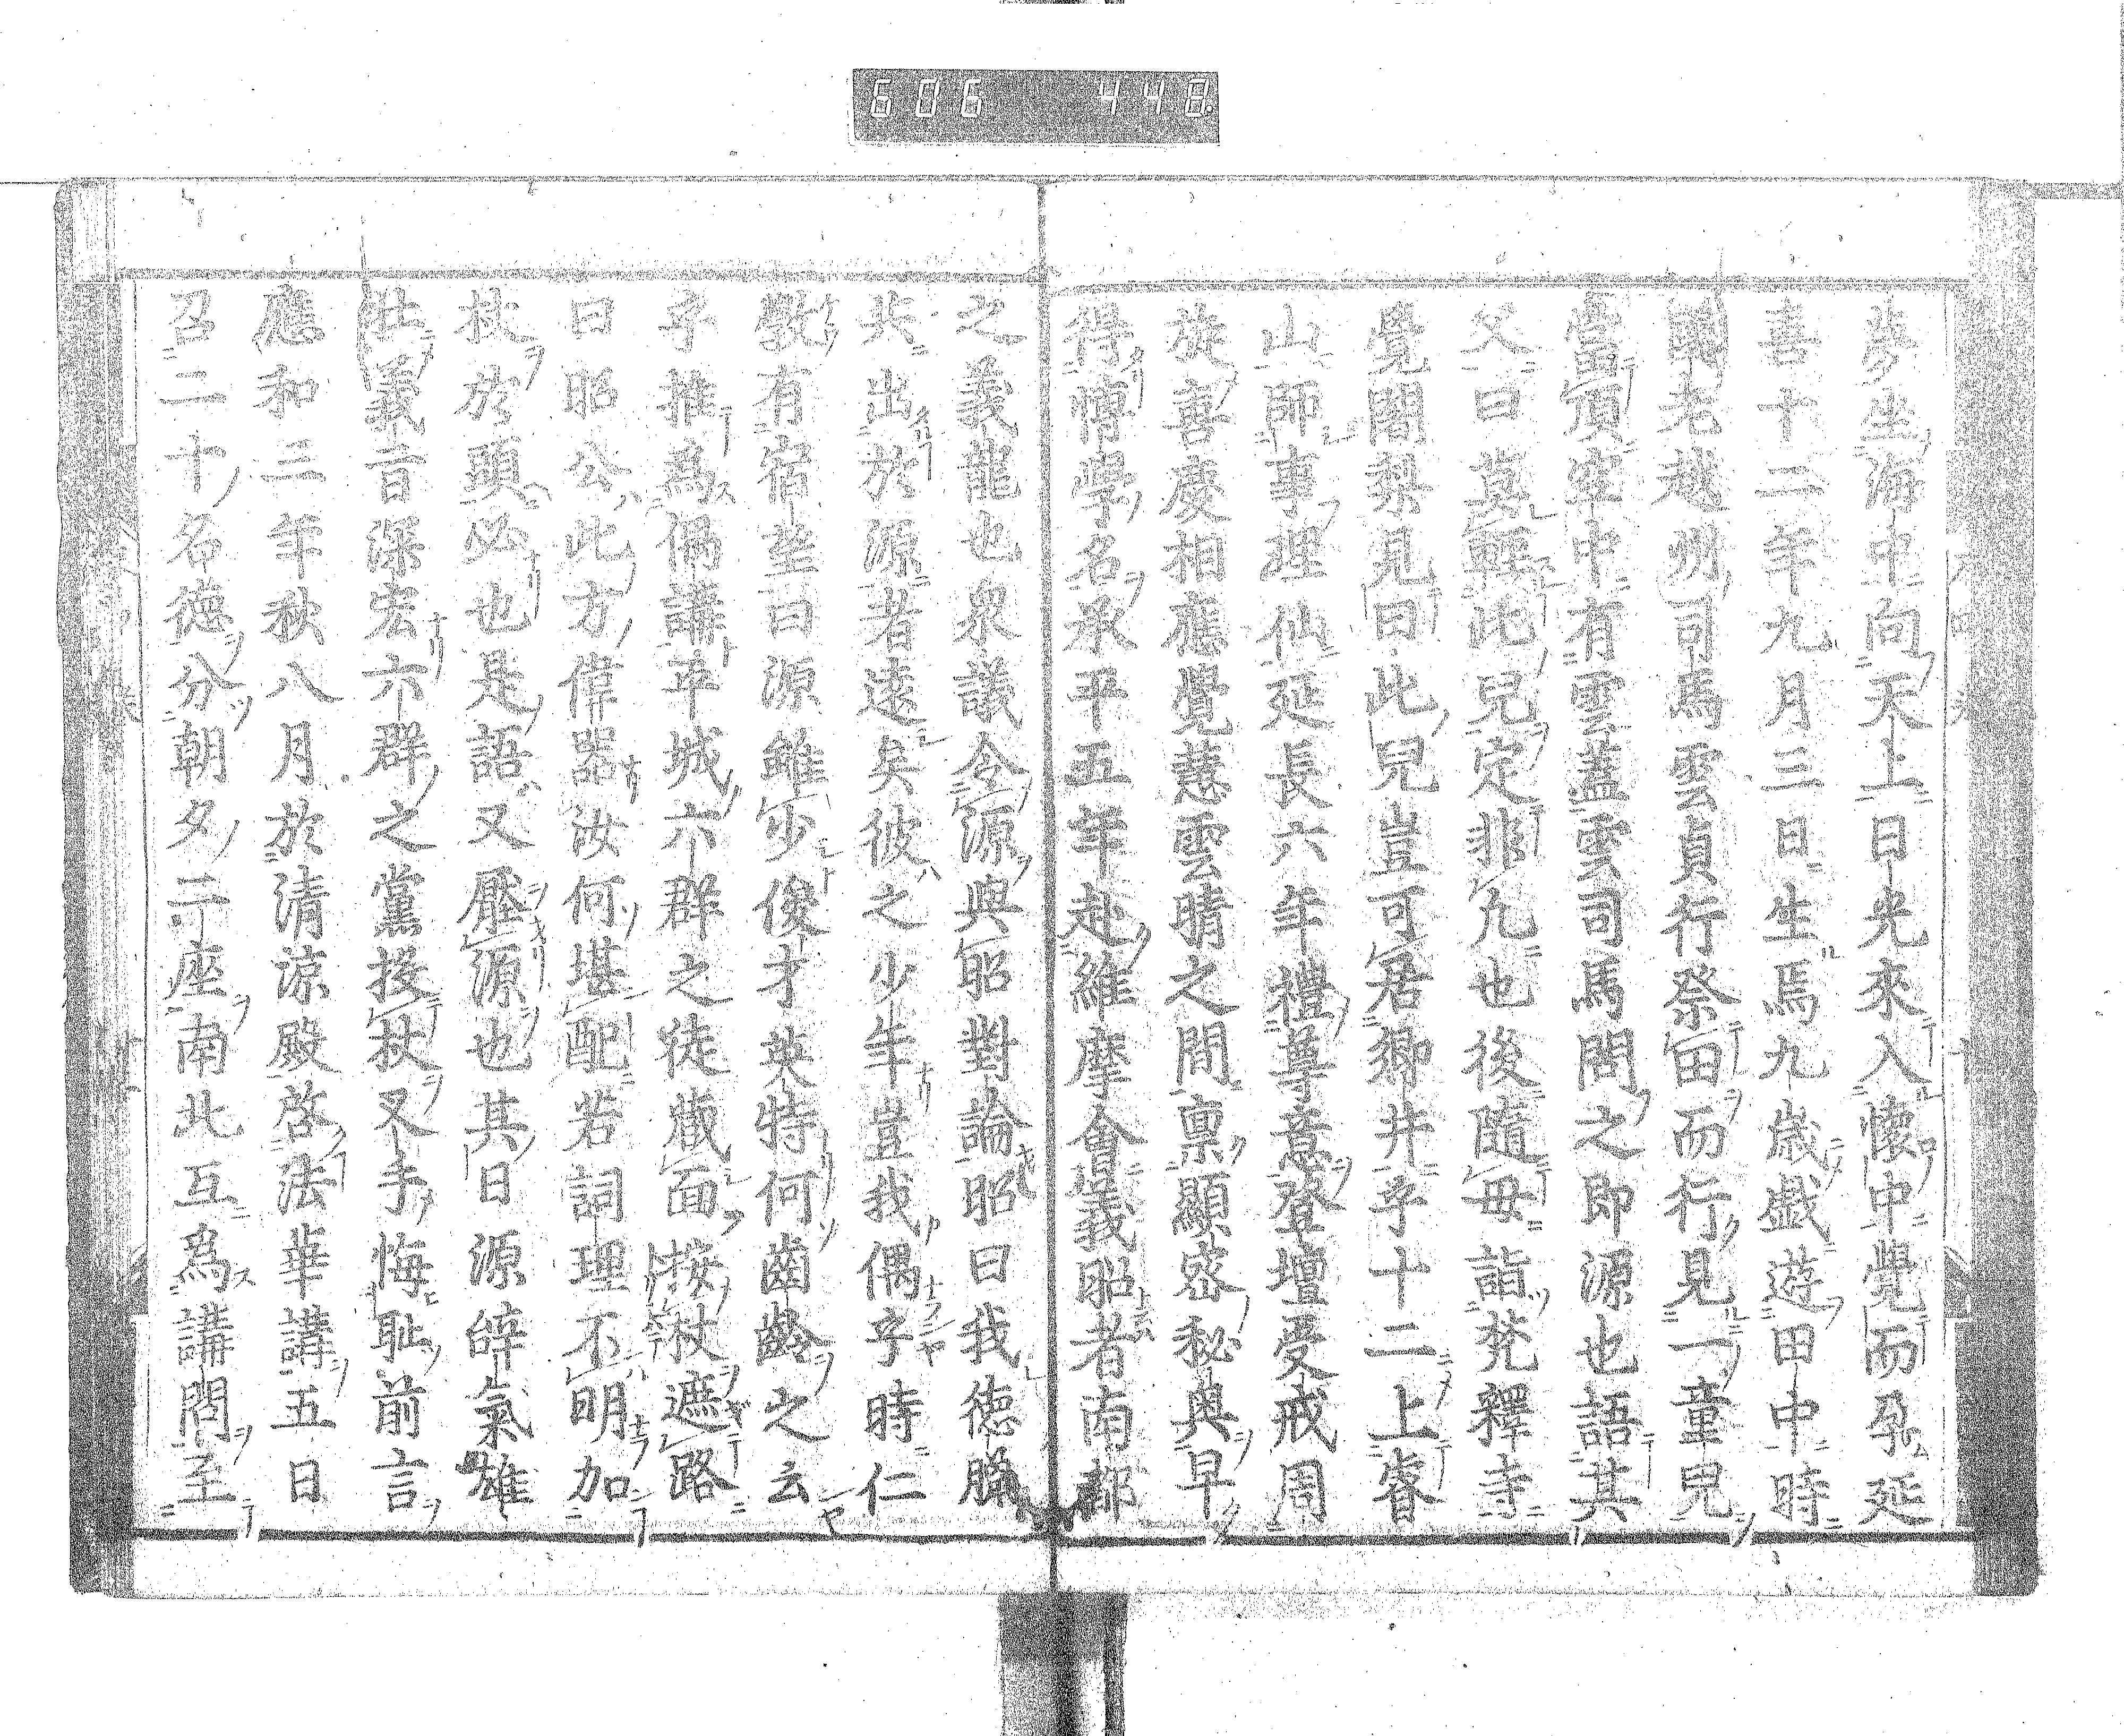 606 448
夢坐海中向天上日光來入懷中覺而孕延
喜十二年九月三日生焉九歳戯遊田中時
國老越州司馬雲貞行祭田而行見一童兒
當頂空中有雲蓋雲司馬問之即源也語其
父曰莫輕此兒定非凢也後隨母詣梵釋寺
覺闍梨見曰此兒豈可居鄉井乎十二上睿
山師事理仙延長六年禮尊意登壇受戒周
旋喜慶相應覺慧雲晴之間禀顯密秘奥早
得博學名承平五年赴維摩會義昭者南都
之義龍也衆議令源與昭對論昭曰我德臘
共出於源者遠矣彼之少年豈我偶乎時仁
斅有宿望曰源雖少俊才英特何齒齡之云
乎推爲偶講平城六群之徒蔵面按杖遮路
曰昭公此方偉噐汝何堪配若詞理不明加
杖於頭必也是語又壓源也其日源辞氣雄
壯義旨深宏六群之黨投杖叉手悔耻前言
應和三年秋八月於清涼殿啓法華講五日
召二十名德分朝夕二座南北互爲講問至